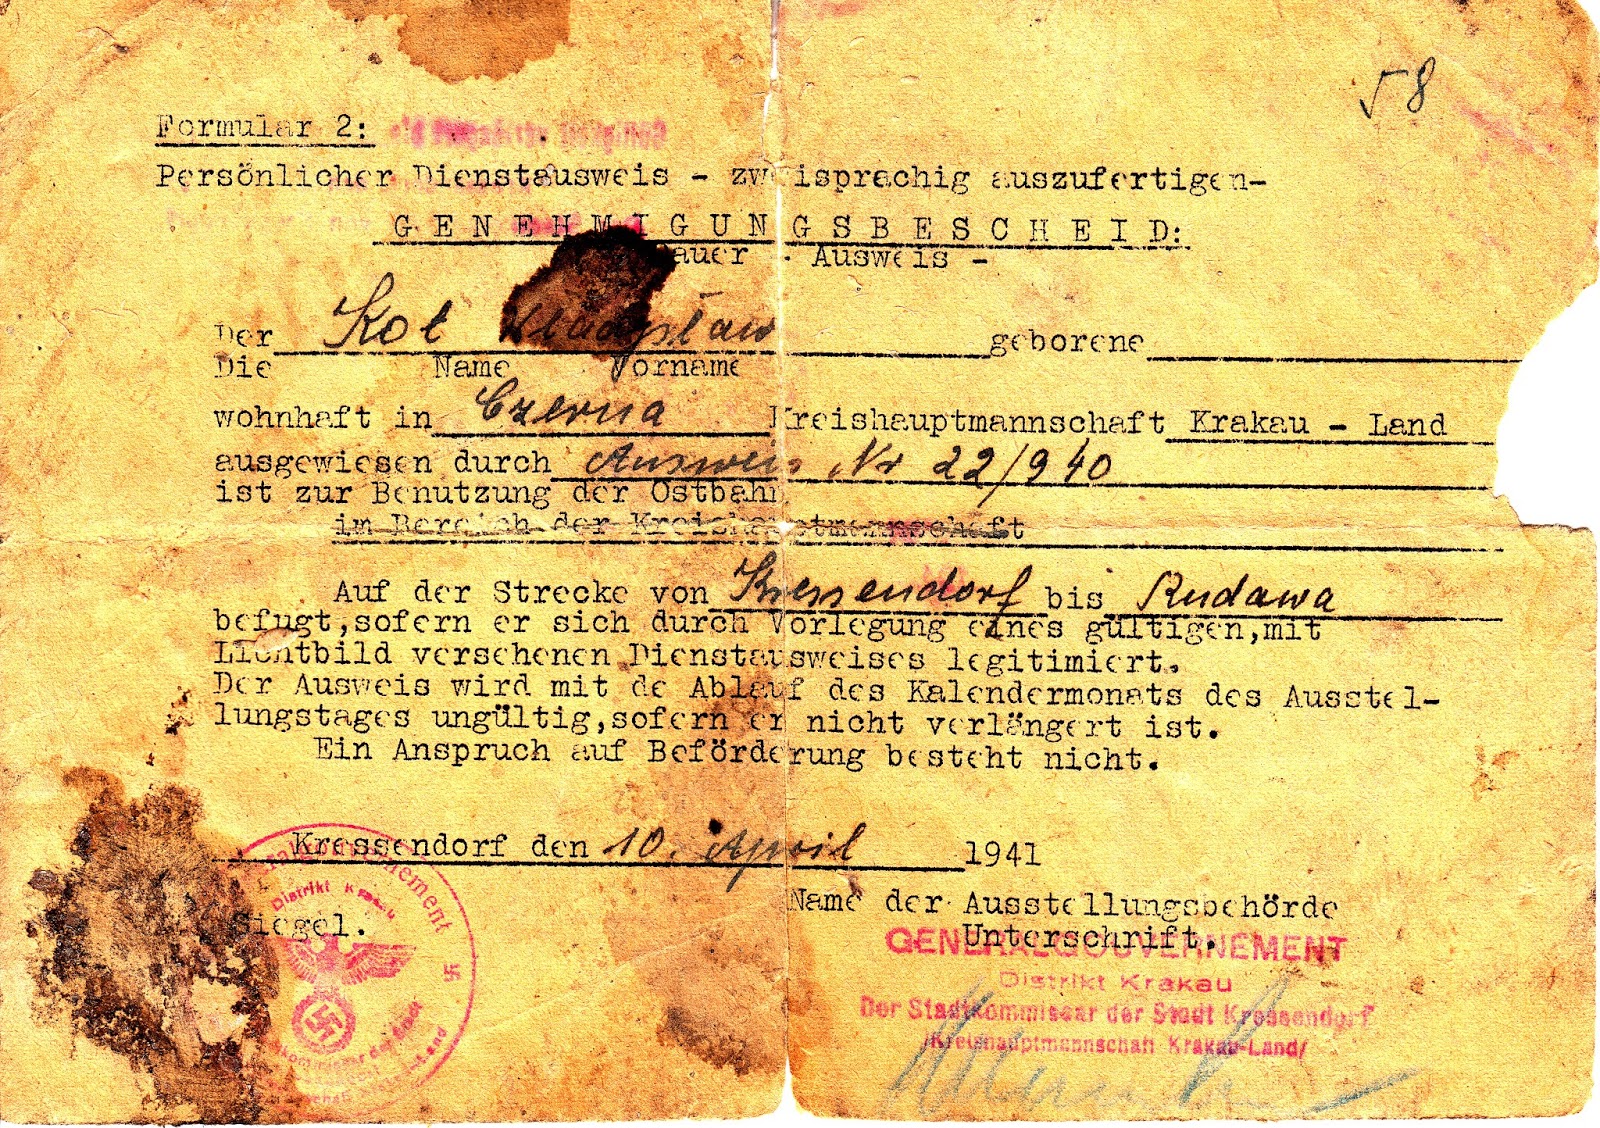 58
Formular 2:
Persönlicher Dienstausweis - zweisprachig auszufertigen-
GENEHMIGUNGSBESCHEID:
auer - Ausweis -
Der Kot Władysław geborene
Die Name Vorname
wohnhaft in Czerna Kreishauptmannschaft Krakau - Land
ausgewiesen durch Ausweis Nr 22/940
ist zur Benutzung der Ostbahn
im Bereich der Kreishauptmannschaft
Auf der Strecke von Kressendorf bis Rudawa
befugt,sofern er sich durch Vorlegung eines gültigen,mit
Lichtbild versehenen Dienstausweises legitimiert.
Der Ausweis wird mit de Ablauf des Kalendermonats des Ausstel-
lungstages ungültig,sofern er nicht verlängert ist.
Ein Anspruch auf Beförderung besteht nicht.
Kressendorf den 10. April 1941
Name der Ausstellungsbehörde
Siegel.
Unterschrift.
GENERALGOUVERNEMENT
Distrikt Krakau
Der Stadtkommissar der Stadt Kressendorf
/Kreishauptmannschaft Krakau-Land/
Distrikt Krakau